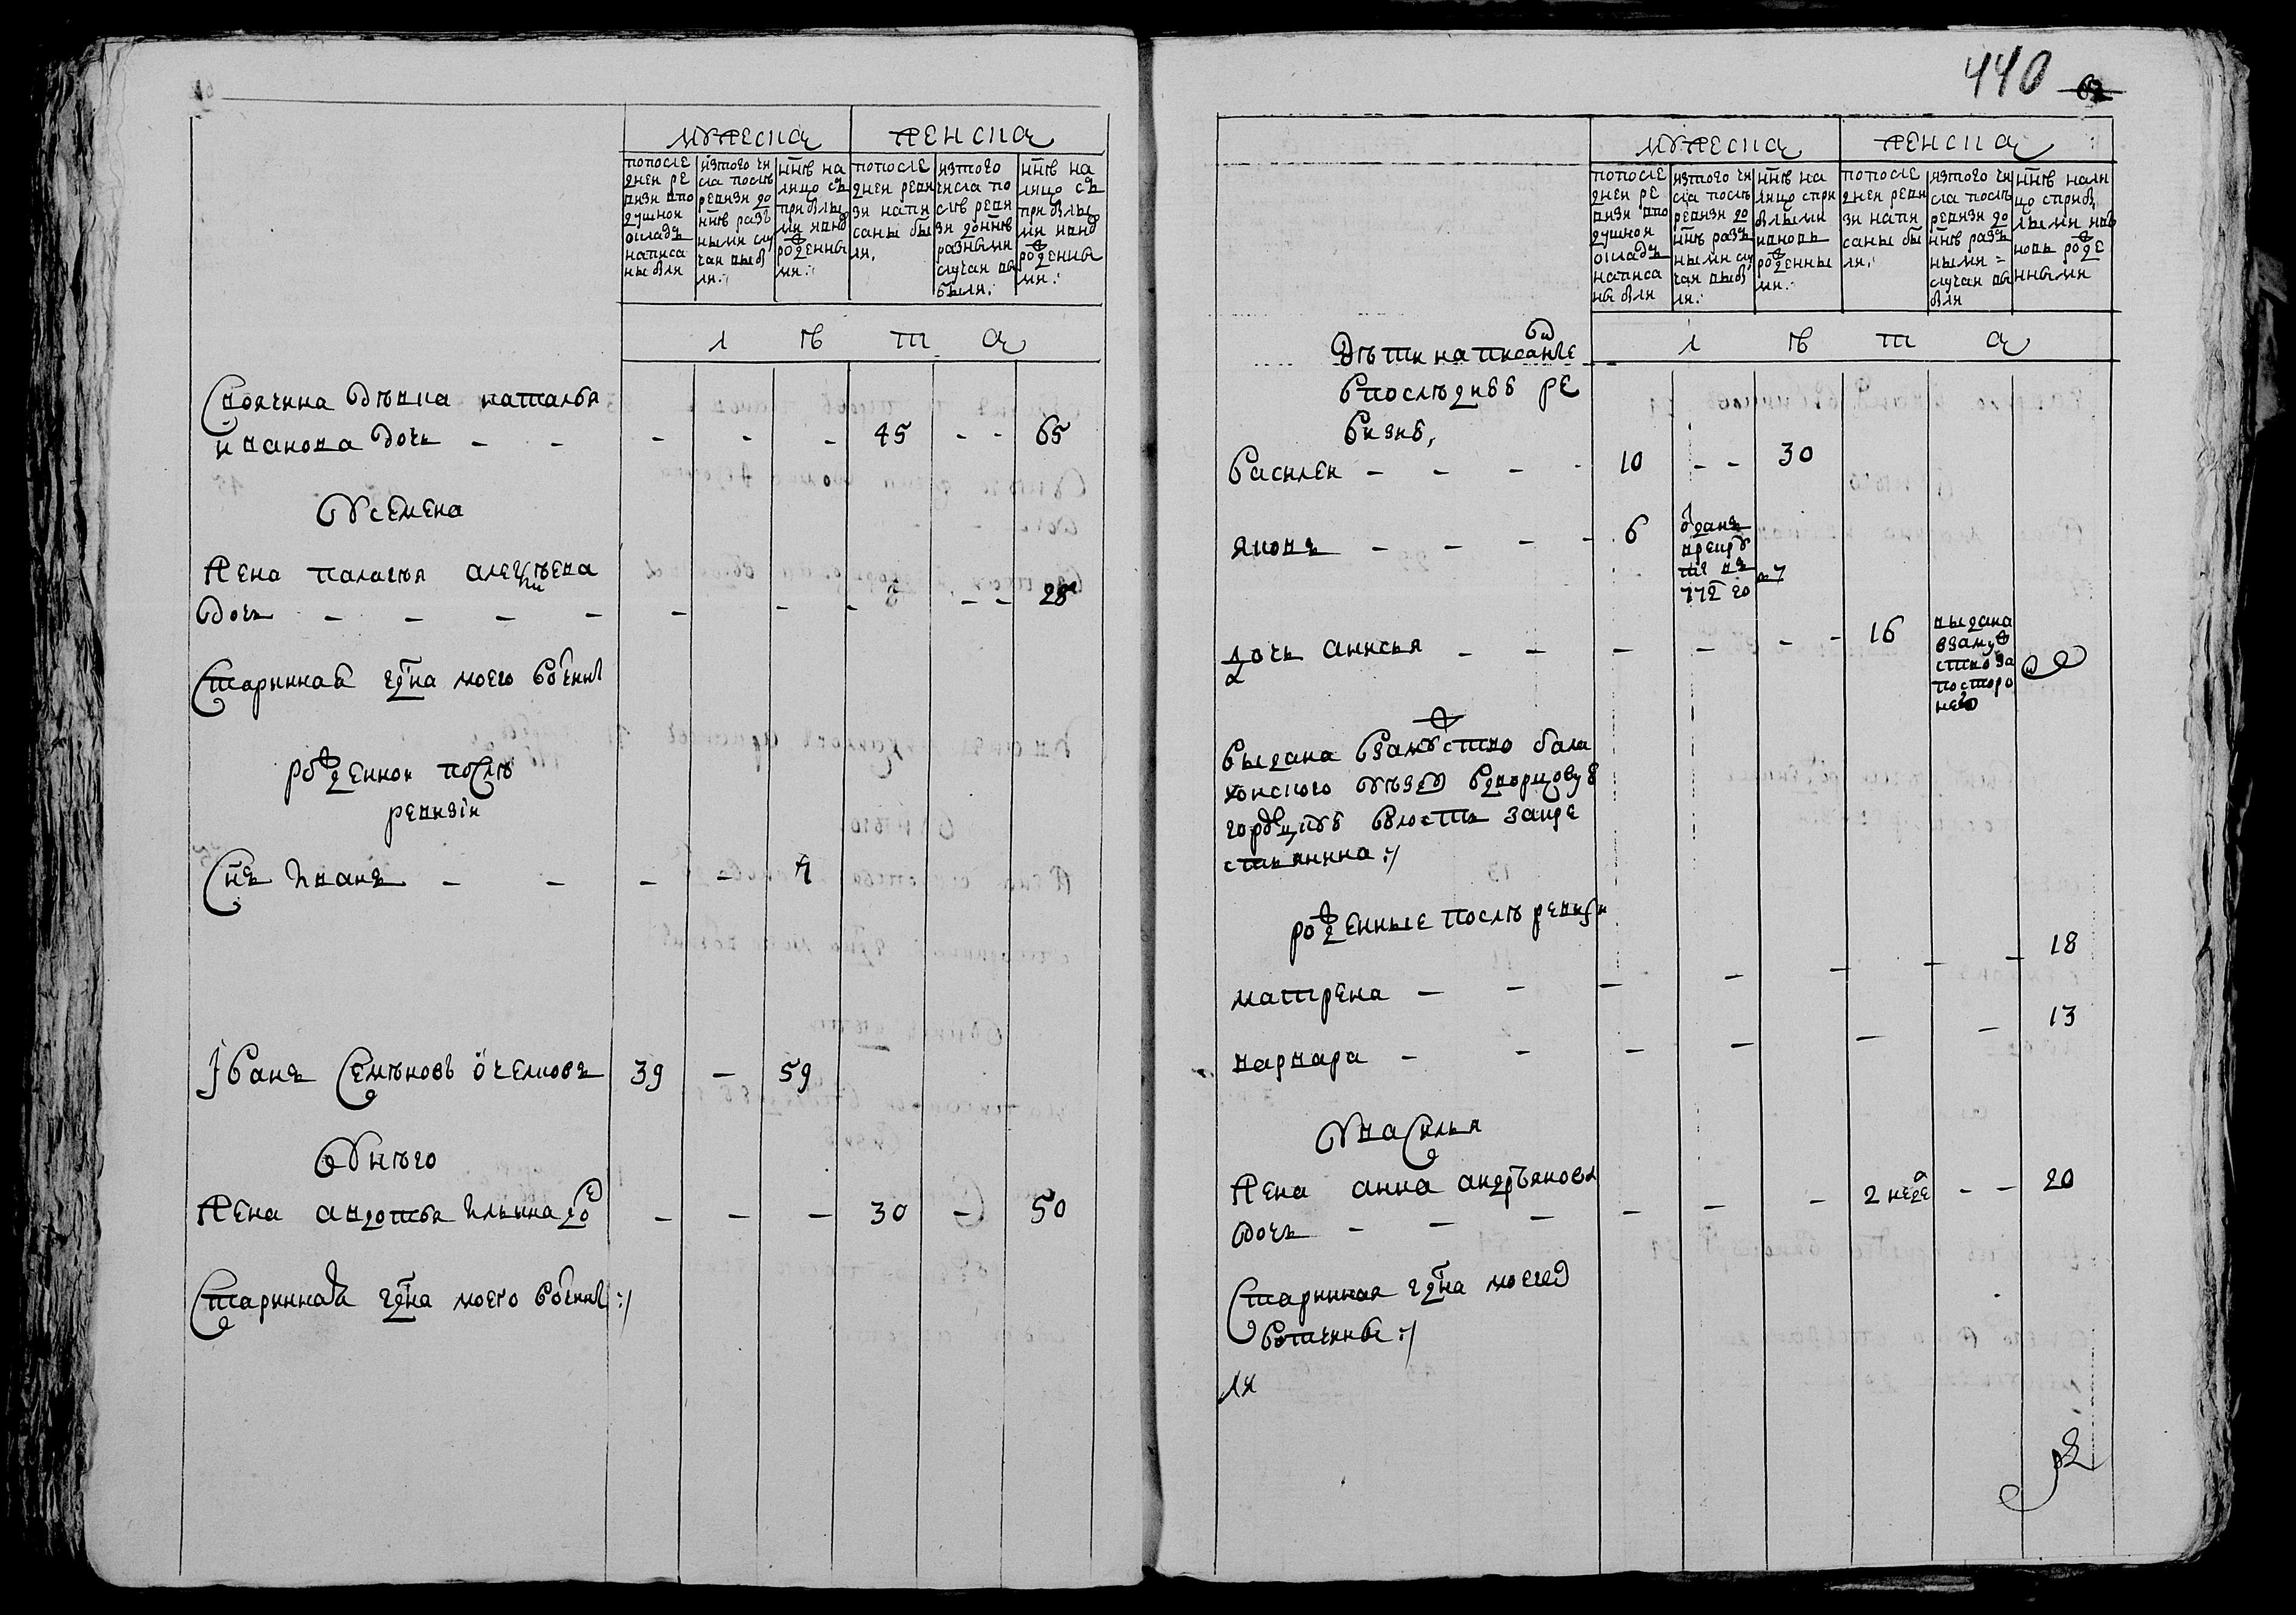 440
62
мужеска
женска
попосле
днеи ре
визи впо
душнои
окладъ
написа
ны были
изтого чи
сла послѣ
ревизи до
ннѣ разъ
ными слу
чаи выбы
ли:
ннѣ на
лицо съ
прибылы
ми ивно
рожденны
ми:
попосле
днеи реви
зи напи
саны бы
ли,
изтого
числа по
слѣ реви
зи доннѣ
разными
случаи вы
были,
ннѣ на
лицо съ
прибылы
ми ивно
рожденны
ми:
л ѣ т а
Своячина вдѣвка наталья
иванова дочь - - - - - 45 - - 65
У семена
Жена палагья алексѣева
дочь - - - - - - - 8 - - 28
Старинная чдна моего вотчины
рожденнои послѣ
ревизiи
Снъ иванъ - - - - 4
Iванъ Семѣновъ очемковъ 39 - 59
У него
Жена авдотья ильина до - - - 30 - 50
Старинная чдна моего вотчины :/
мужеска
женска
попосле
днеи ре
визи впо
душнои
окладъ
написа
ны были
изтого чи
сла послѣ
ревизи до
ннѣ разъ
ными слу
чаи выбы
ли:
ннѣ на
лицо спри
былыми
ивновь
рожденны
ми:
попосле
днеи реви
зи напи
саны бы
ли:
изтого чи
сла послѣ
ревизи до
ннѣ разъ
ными =
случаи вы
были
ннѣ нали
цо сприбы
лыми ивно
новь рожде
нными
л ѣ т а
У нихъ дѣти написаные
впослѣднеи ре
визи,
василеи - - - - 10 - - 30
яковъ - - - - 6
отданъ
врекру
ты въ
772 го
дочь анисья - - - - - - 16
выдана
взамуж
ство за
посторо
него
выдана взамужство бала
хонского уѣзда вдворцовую
городецкую волость закре
стьянина :/
рожденные послѣ ревизи
матрена - - - - - - - 18
варвара - - - - - - 13
У василья
Жена анна андрѣянова
дочь - - - - - - 2 неде - - 20
Старинная чдна моеи
вотчины :/